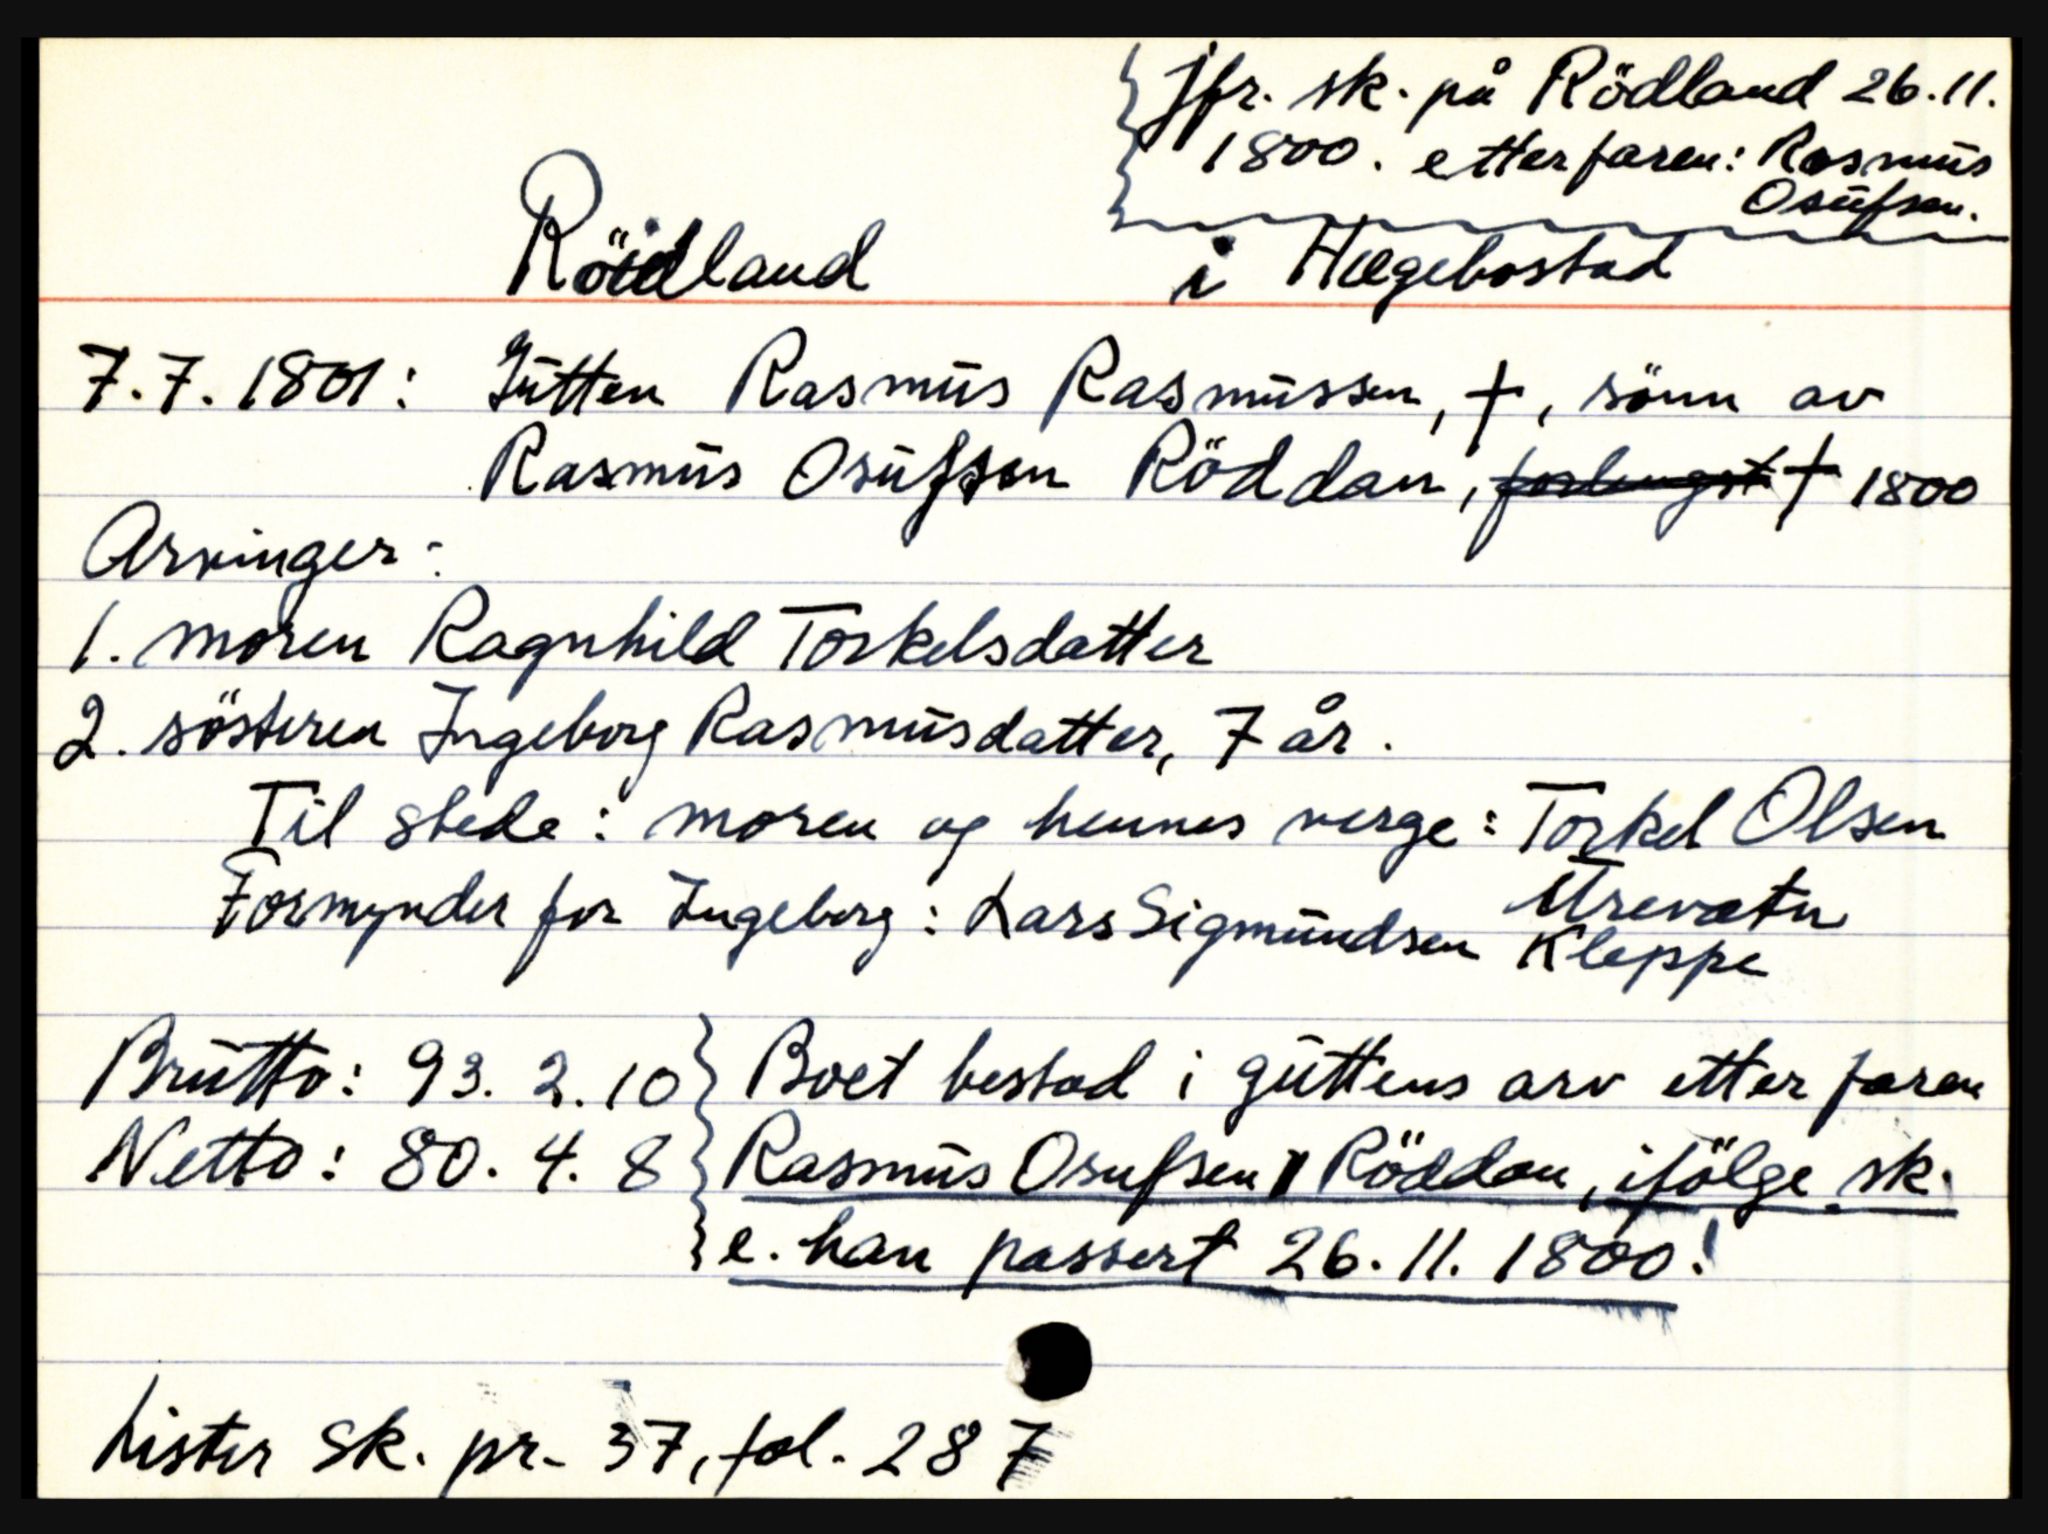 jfr. sk. på Rödland 26.11.
1800. etter faren: Rasmus
Osufsen.
Rödland i Hægebostad
7.7.1801: Gutten Rasmus Rasmussen, †, sönn av
Rasmus Osufsen Röddan, forlengst † 1800
Arvinger:
1. moren Ragnhild Torkelsdatter
2. sösteren Ingeborg Rasmusdatter, 7 år.
Til stede: moren og hennes verge: Torkel Olsen
Urevatn
Formynder for Ingeborg: Lars Sigmundsen Kleppe
Brutto: 93. 2. 10 } Boet bestod i guttens arv etter faren
Netto: 80. 4. 8 } Rasmus Osufsen Röddan, ifölge sk.
e. han passert 26.11.1800!
Lister sk. pr. 37, fol. 287